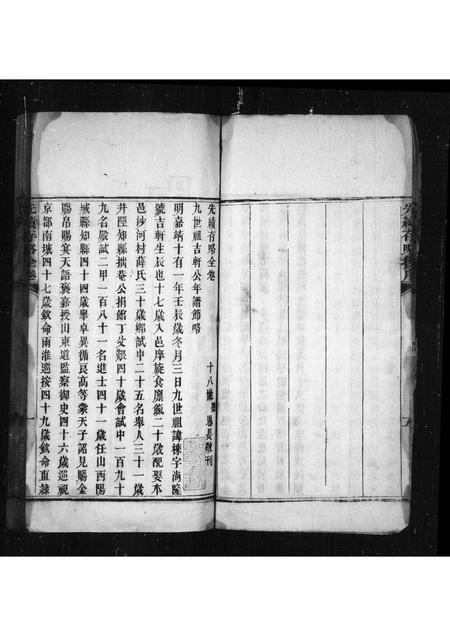 先績存略後序
先績存略全卷
十八世 恩長敬刊
九世祖吉軒公年譜節略
明嘉靖十有一年壬辰歲冬月三日九世祖諱棟字尚隆
號吉軒生辰也十七歲入邑庠旋食廩餼二十歲配娶本
邑沙河村薛氏三十歲鄉試中二十五名舉人三十一歲
井陘知縣揣菴公捐館丁父艱四十歲會試中一百九十
九名殿試二甲一百八十一名進士四十一歲任山西陽
城縣知縣四十四歲舉卓異循良高等蒙天子詔見賜金
賜帛賜宴天語褒嘉授山東道監察御史四十六歲巡視
京都南城四十七歲欽命兩淮巡按四十九歲欽命直隸
先績存略全卷
一